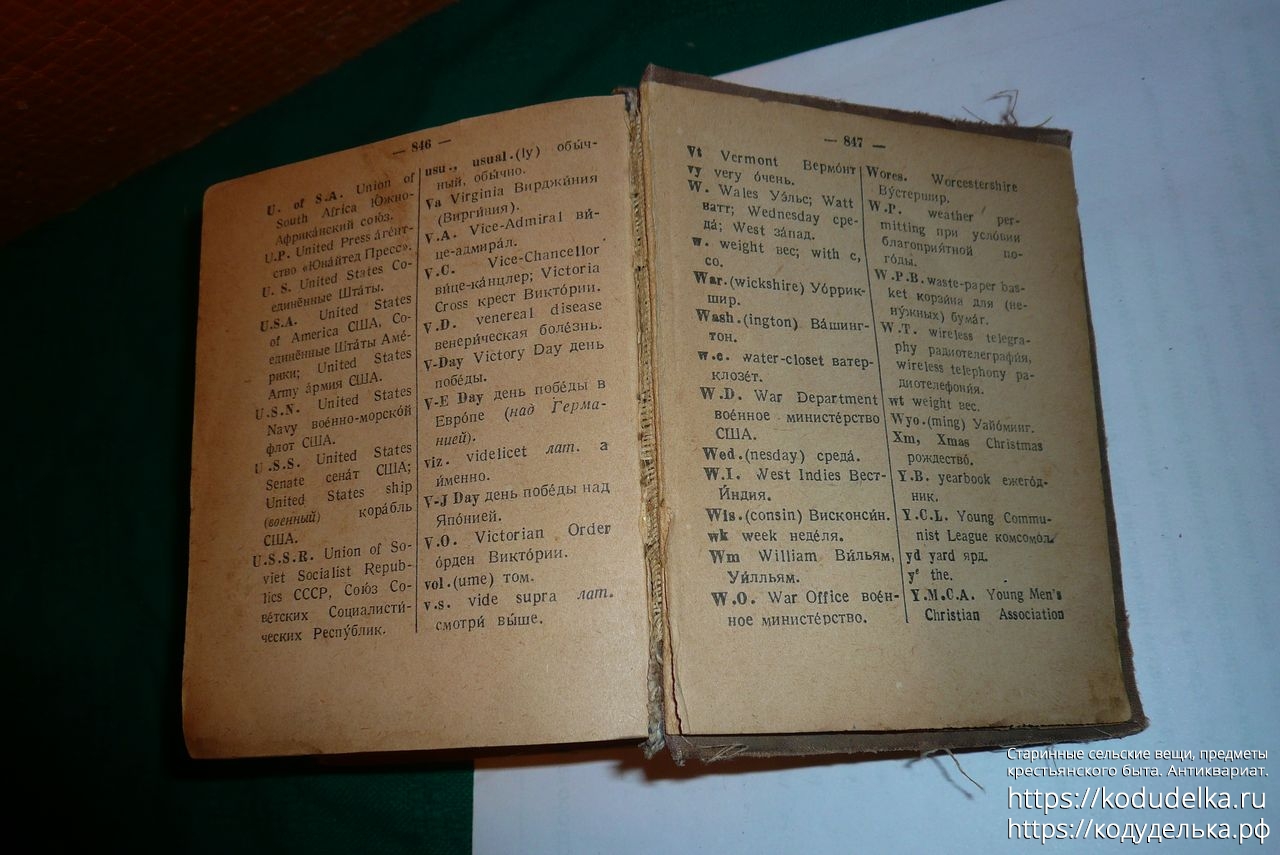 — 846 —
U. of S.A. Union of
South Africa Ю́жно-
Африка́нский сою́з.
U.P. United Press аге́нт-
ство «Юна́йтед Пресс».
U. S. United States Со-
единённые Шта́ты.
U.S.A. United States
of America США, Со-
единённые Шта́ты Аме́-
рики; United States
Army а́рмия США.
U.S.N. United States
Navy вое́нно-морско́й
флот США.
U.S.S. United States
Senate сена́т США;
United States ship
(военный) кора́бль
США.
U.S.S.R. Union of So-
viet Socialist Repub-
lics СССР, Сою́з Со-
ве́тских Социалисти́-
ческих Респу́блик.
usu., usual.(ly) обы́ч-
ный, обы́чно.
Va Virginia Вирджи́ния
(Вирги́ния).
V.A. Vice-Admiral ви́-
це-адмира́л.
V.C. Vice-Chancellor
ви́це-ка́нцлер; Victoria
Cross крест Викто́рии.
V.D. venereal disease
венери́ческая боле́знь.
V-Day Victory Day день
побе́ды.
V-E Day день побе́ды в
Евро́пе (над Герма-
нией).
viz. videlicet лат. а
и́менно.
V-J Day день побе́ды над
Япо́нией.
V.O. Victorian Order
о́рден Викто́рии.
vol.(ume) том.
v.s. vide supra лат.
смотри́ вы́ше.
— 847 —
Vt Vermont Вермо́нт
vy very о́чень.
W. Wales Уэ́льс; Watt
ватт; Wednesday сре-
да́; West за́пад.
w. weight вес; with с,
со.
War.(wickshire) Уо́ррик-
шир.
Wash.(ington) Ва́шинг-
тон.
w.c. water-closet ватер-
клозе́т.
W.D. War Department
вое́нное министе́рство
США.
Wed.(nesday) среда́.
W.I. West Indies Вест-
И́ндия.
Wis.(consin) Виско́нси́н.
wk week неде́ля.
Wm William Ви́льям,
Уи́лльям.
W.O. War Office вое́н-
ное министе́рство.
Wores. Worcestershire
Ву́стершир.
W.P. weather per-
mitting при усло́вии
благоприя́тной по-
го́ды.
W.P.B. waste-paper bas-
ket корзи́на для (не-
ну́жных) бума́г.
W.T. wireless telegra-
phy радиотелегра́фия,
wireless telephony ра-
диотелефони́я.
wt weight вес.
Wyo.(ming) Уайо́минг.
Xm, Xmas Christmas
рождество́.
Y.B. yearbook ежего́д-
ник.
Y.C.L. Young Commu-
nist League комсомо́л.
yd yard ярд.
yᵉ the.
Y.M.C.A. Young Men's
Christian Association
Старинные сельские вещи, предметы
крестьянского быта. Антиквариат.
https://kodudelka.ru
https://кодуделька.рф